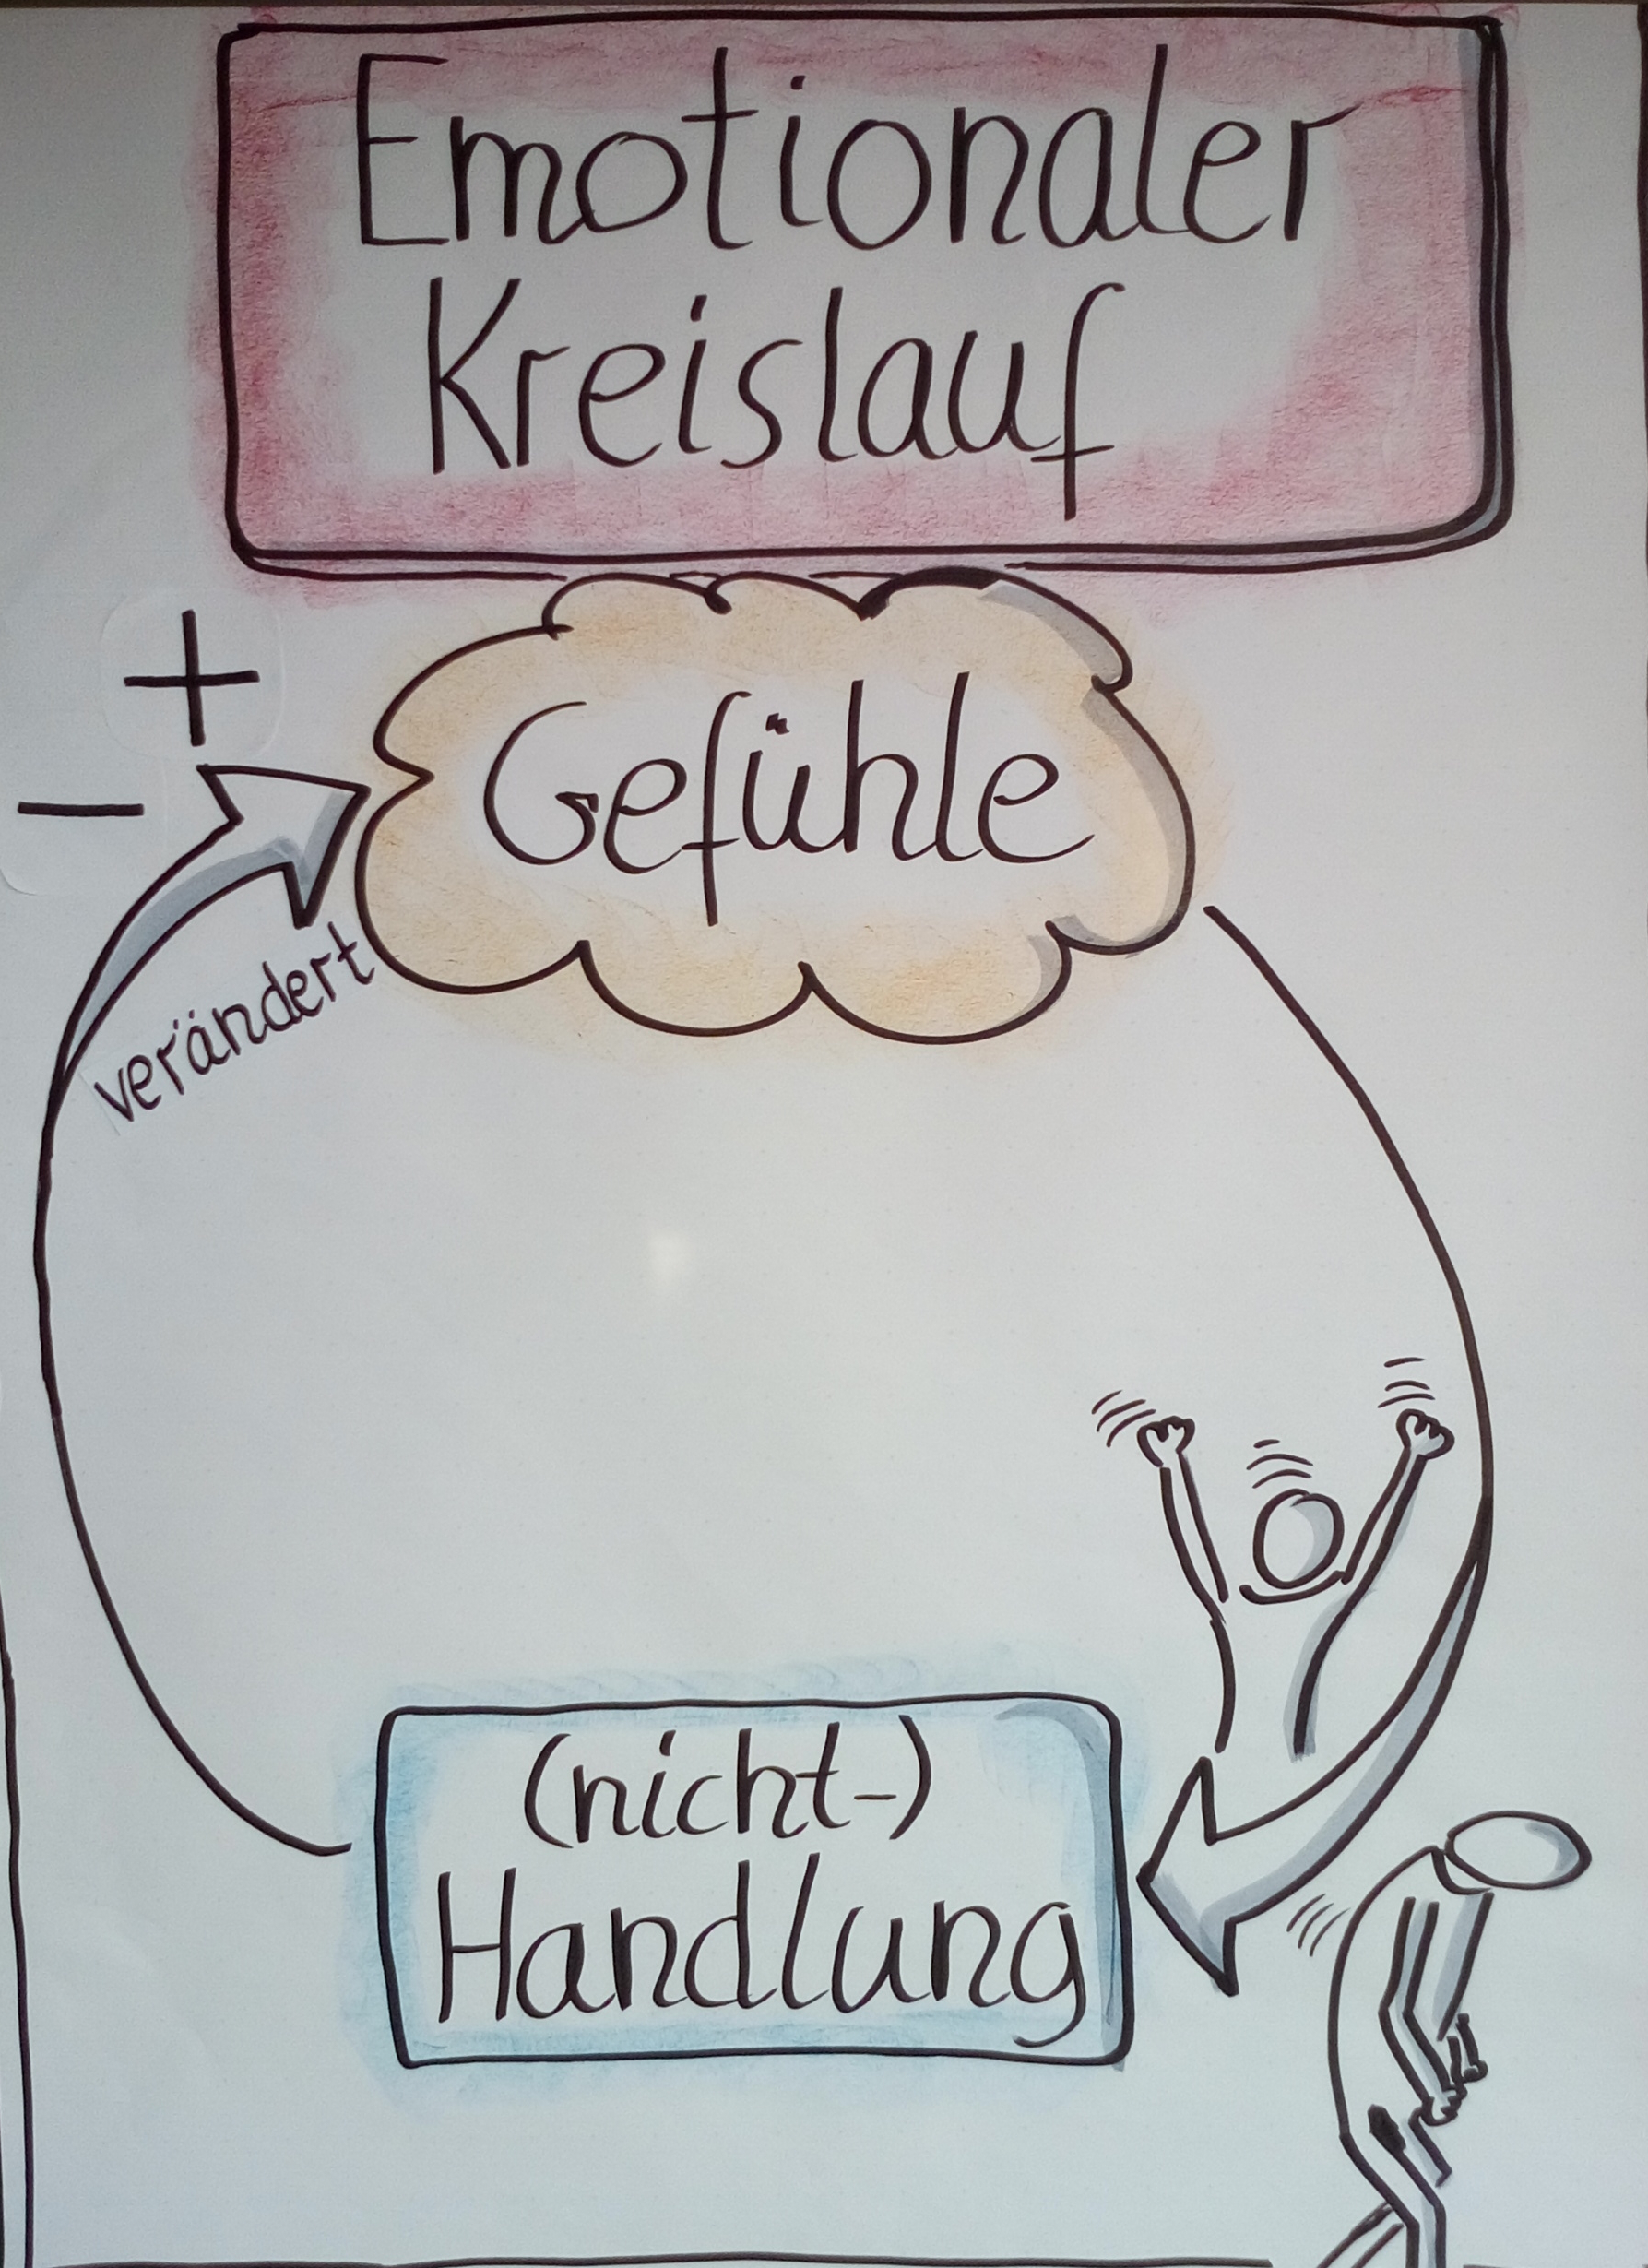 Emotionaler
Kreislauf
+
Gefühle
–
verändert
(nicht-)
Handlung